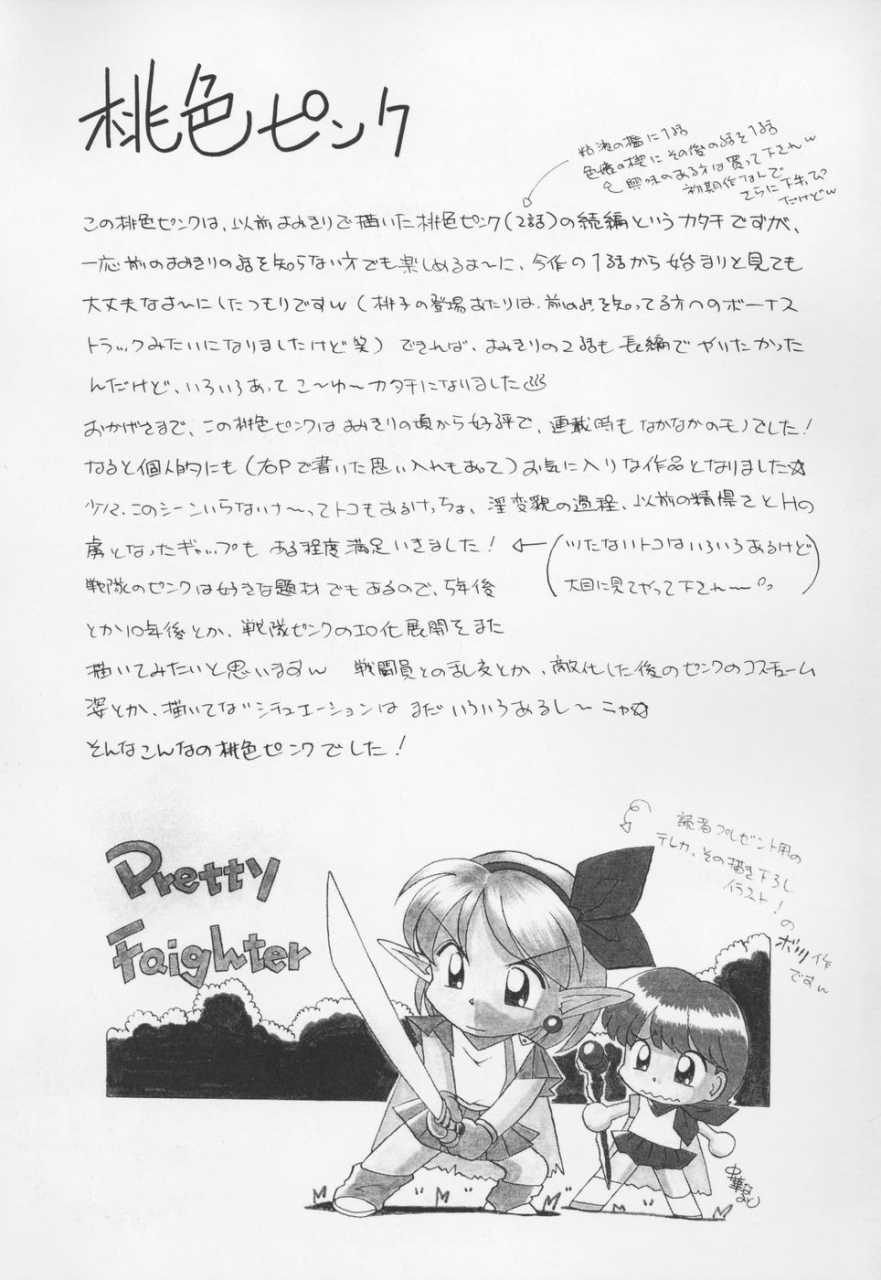 桃色ピンク
粘液の檻に1話
色癒の楔にその後の話を1話
興味のある方は買って下されw
初期作なんで
さらに下手っぴ
だけどw
この桃色ピンクは、以前よみきりで描いた桃色ピンク(2話)の続編というカタチですが、
一応前のよみきりの話を知らない方でも楽しめるよ〜に、今作の1話から始まりと見ても
大丈夫なよ〜にしたつもりですw(桃子の登場あたりは、前のを知ってる方へのボーナス
トラックみたいになりましたけど笑)できれば、よみきりの2話も長編でやりたかった
んだけど、いろいろあってこ〜ゆ〜カタチになりました
おかげさまで、この桃色ピンクはよみきりの頃から好評で、連載時もなかなかのモノでした!
なると個人的にも(右Pで書いた思い入れもあって)お気に入りな作品となりました☆
少々、このシーンいらないナ〜ってトコもあるけっちょ、淫変貌の過程、以前の精悍さとHの
虜となったギャップもある程度満足いきました!
(ツたないトコはいろいろあるけど
大目に見てやって下され〜)
戦隊のピンクは好きな題材でもあるので、5年後
とか10年後とか、戦隊ピンクのエロ化展開をまた
描いてみたいと思いますw 戦闘員との乱交とか、敵化した後のピンクのコスチューム
姿とか、描いてないシチュエーションはまだいろいろあるし〜ニャ☆
そんなこんなの桃色ピンクでした!
読者プレゼント用の
テレカ、その描き下ろし
イラスト!
のボツ作
ですw
Pretty
Faighter
中華なると